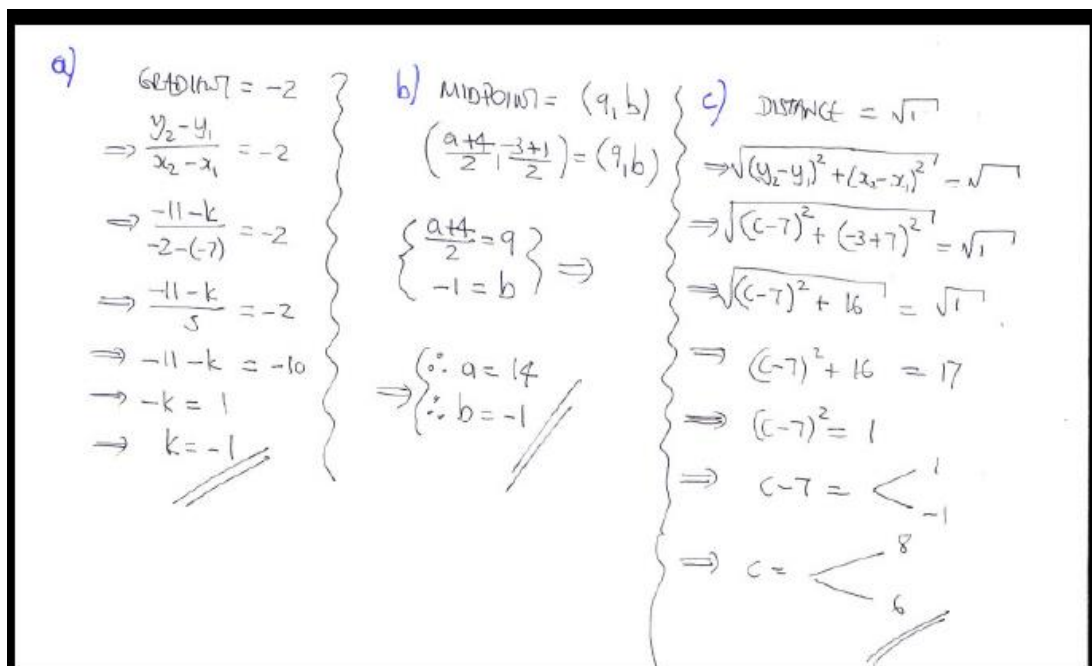 a)
GRADIENT = -2
⇒ (y₂ - y₁)/(x₂ - x₁) = -2
⇒ (-11 - k)/(-2 - (-7)) = -2
⇒ (-11 - k)/5 = -2
⇒ -11 - k = -10
→ -k = 1
⇒ k = -1
b) MIDPOINT = (9, b)
((a+4)/2, (-3+1)/2) = (9, b)
{ (a+4)/2 = 9
-1 = b } ⇒
⇒ { ∴ a = 14
∴ b = -1
c) DISTANCE = √17
⇒ √((y₂ - y₁)² + (x₂ - x₁)²) = √17
⇒ √((c - 7)² + (-3 + 7)²) = √17
⇒ √((c - 7)² + 16) = √17
⇒ (c - 7)² + 16 = 17
⇒ (c - 7)² = 1
⇒ c - 7 = < 1
-1
⇒ c = < 8
6